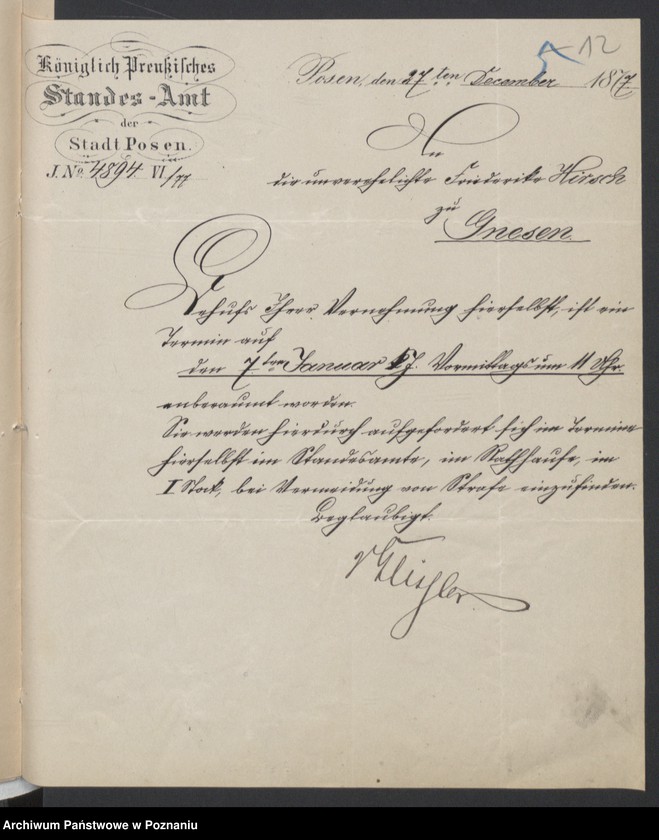 Königlich Preußisches
Standes-Amt
der
Stadt Posen.
J. No. 4894 VI/77
12
Posen, den 27ten December 1877
An
die unverehelichte Friederike Hirsch
zu
Gnesen.
Behufs Ihrer Vernehmung hierselbst, ist ein
Termin auf
den 7ten Januar k. J. Vormittags um 11 Uhr
anberaumt worden.
Sie werden hierdurch aufgefordert sich im Termine
hierselbst im Standesamte, im Rathhause, im
I Stock, bei Vermeidung von Strafe einzufinden.
Beglaubigt.
Archiwum Państwowe w Poznaniu